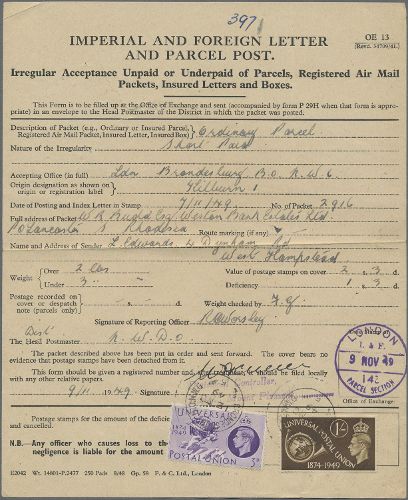 397
OE 13
IMPERIAL AND FOREIGN LETTER
AND PARCEL POST.
Irregular Acceptance Unpaid or Underpaid of Parcels, Registered Air Mail
Packets, Insured Letters and Boxes.
This Form is to be filled up at the Office of Exchange and sent (accompanied by form P 29H when that form is appro-
priate) in an envelope to the Head Postmaster of the District in which the packet was posted.
Description of Packet (e.g., Ordinary or Insured Parcel, Registered Air Mail Packet, Insured Letter, Insured Box) Ordinary Parcel
Nature of the Irregularity Short Paid
Accepting Office (in full) Ldn Brondesbury B.O. N.W.6
Origin designation as shown on origin or registration label Kilburn 1
Date of Posting and Index Letter in Stamp 7/11/49 No. of Packet 2916
Full address of Packet W R Rudd Esq Weston Bank Estates Ltd
PO Lancaster S Rhodesia Route marking (if any)
Name and Address of Sender L. Edwards 4 Dynham Rd
West Hampstead
Weight Over 2 lbs Value of postages stamps on cover 2 s. 3 d.
Under 3 Deficiency 1 s. 3 d.
Postage recorded on cover or despatch note (parcels only) s. d. Weight checked by
Signature of Reporting Officer R Worsley
Dist
The Head Postmaster N.W.D.O
The packet described above has been put in order and sent forward. The cover bears no evidence
that postage stamps have been detached from it.
This form should be given a registered number and, it should be filed locally
with any other relative papers.
9/11 1949 Signature
Controller,
LONDON
I. & F.
9 NOV 49
143
PARCEL SECTION
Office of Exchange.
Postage stamps for the amount of the deficie
and cancelled.
N.B. Any officer who causes loss to th
negligence is liable for the amount
UNIVERSAL
POSTAL UNION
1874
1949
3D
1/-
UNIVERSAL POSTAL UNION
1874-1949
E2042 Wt. 14801-P.2477 250 Pads 9/48 Gp. 58 F. & C. Ltd., London